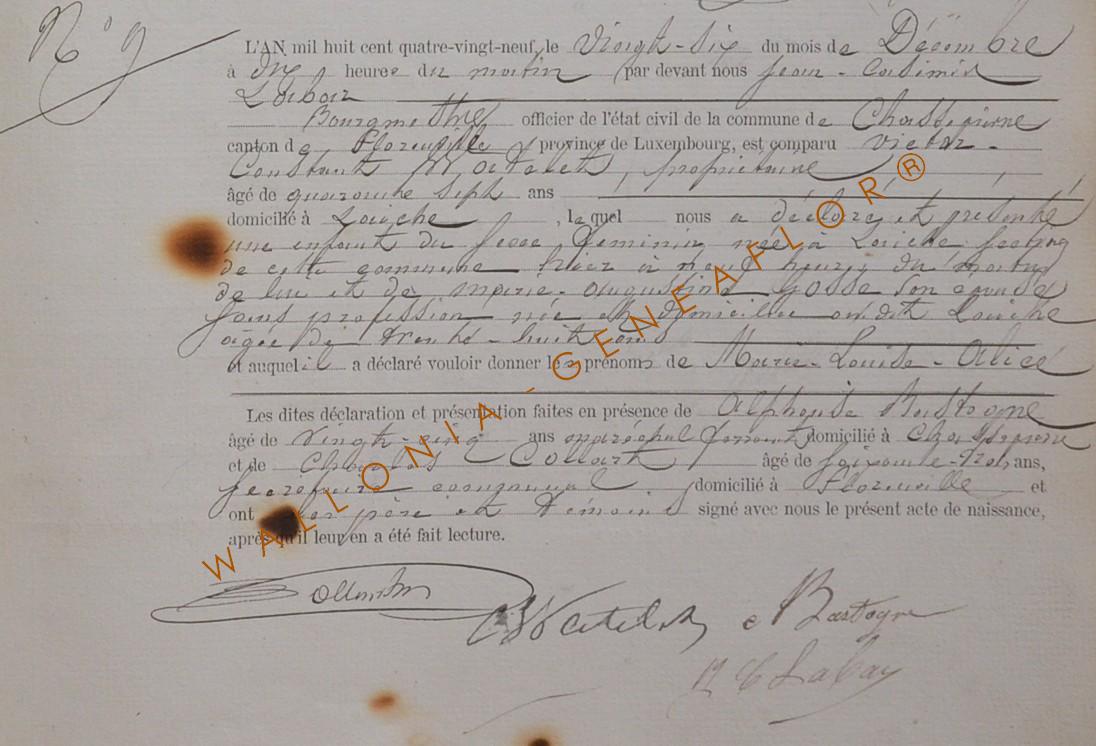 N° 9
L'AN mil huit cent quatre-vingt-neuf, le Vingt-Six du mois de Décembre
à dix heures du matin par devant nous Jean-Casimir
Labar
Bourgmestre officier de l'état civil de la commune de Chassepierre
canton de Florenville province de Luxembourg, est comparu Victor-
Constant Watelet, propriétaire
âgé de quarante sept ans
domicilié à Laiche, lequel nous a déclaré et présenté
une enfant du sexe féminin née à Laiche section
de cette commune hier à neuf heures du matin
de lui et de Marie-Augustine Gosse son épouse
sans profession née et domiciliée au dit Laiche
âgée de trente-huit ans
et auquel il a déclaré vouloir donner les prénoms de Marie-Louise-Alice
Les dites déclaration et présentation faites en présence de Alphonse Bastogne
âgé de vingt-cinq ans domicilié à Chassepierre
et de Charles Collart âgé de soixante-trois ans,
secrétaire communal domicilié à Florenville et
ont père et témoins signé avec nous le présent acte de naissance,
après qu'il leur en a été fait lecture.
Watelet Bastogne
Labar
WALLONIA-GENEAFLOR®